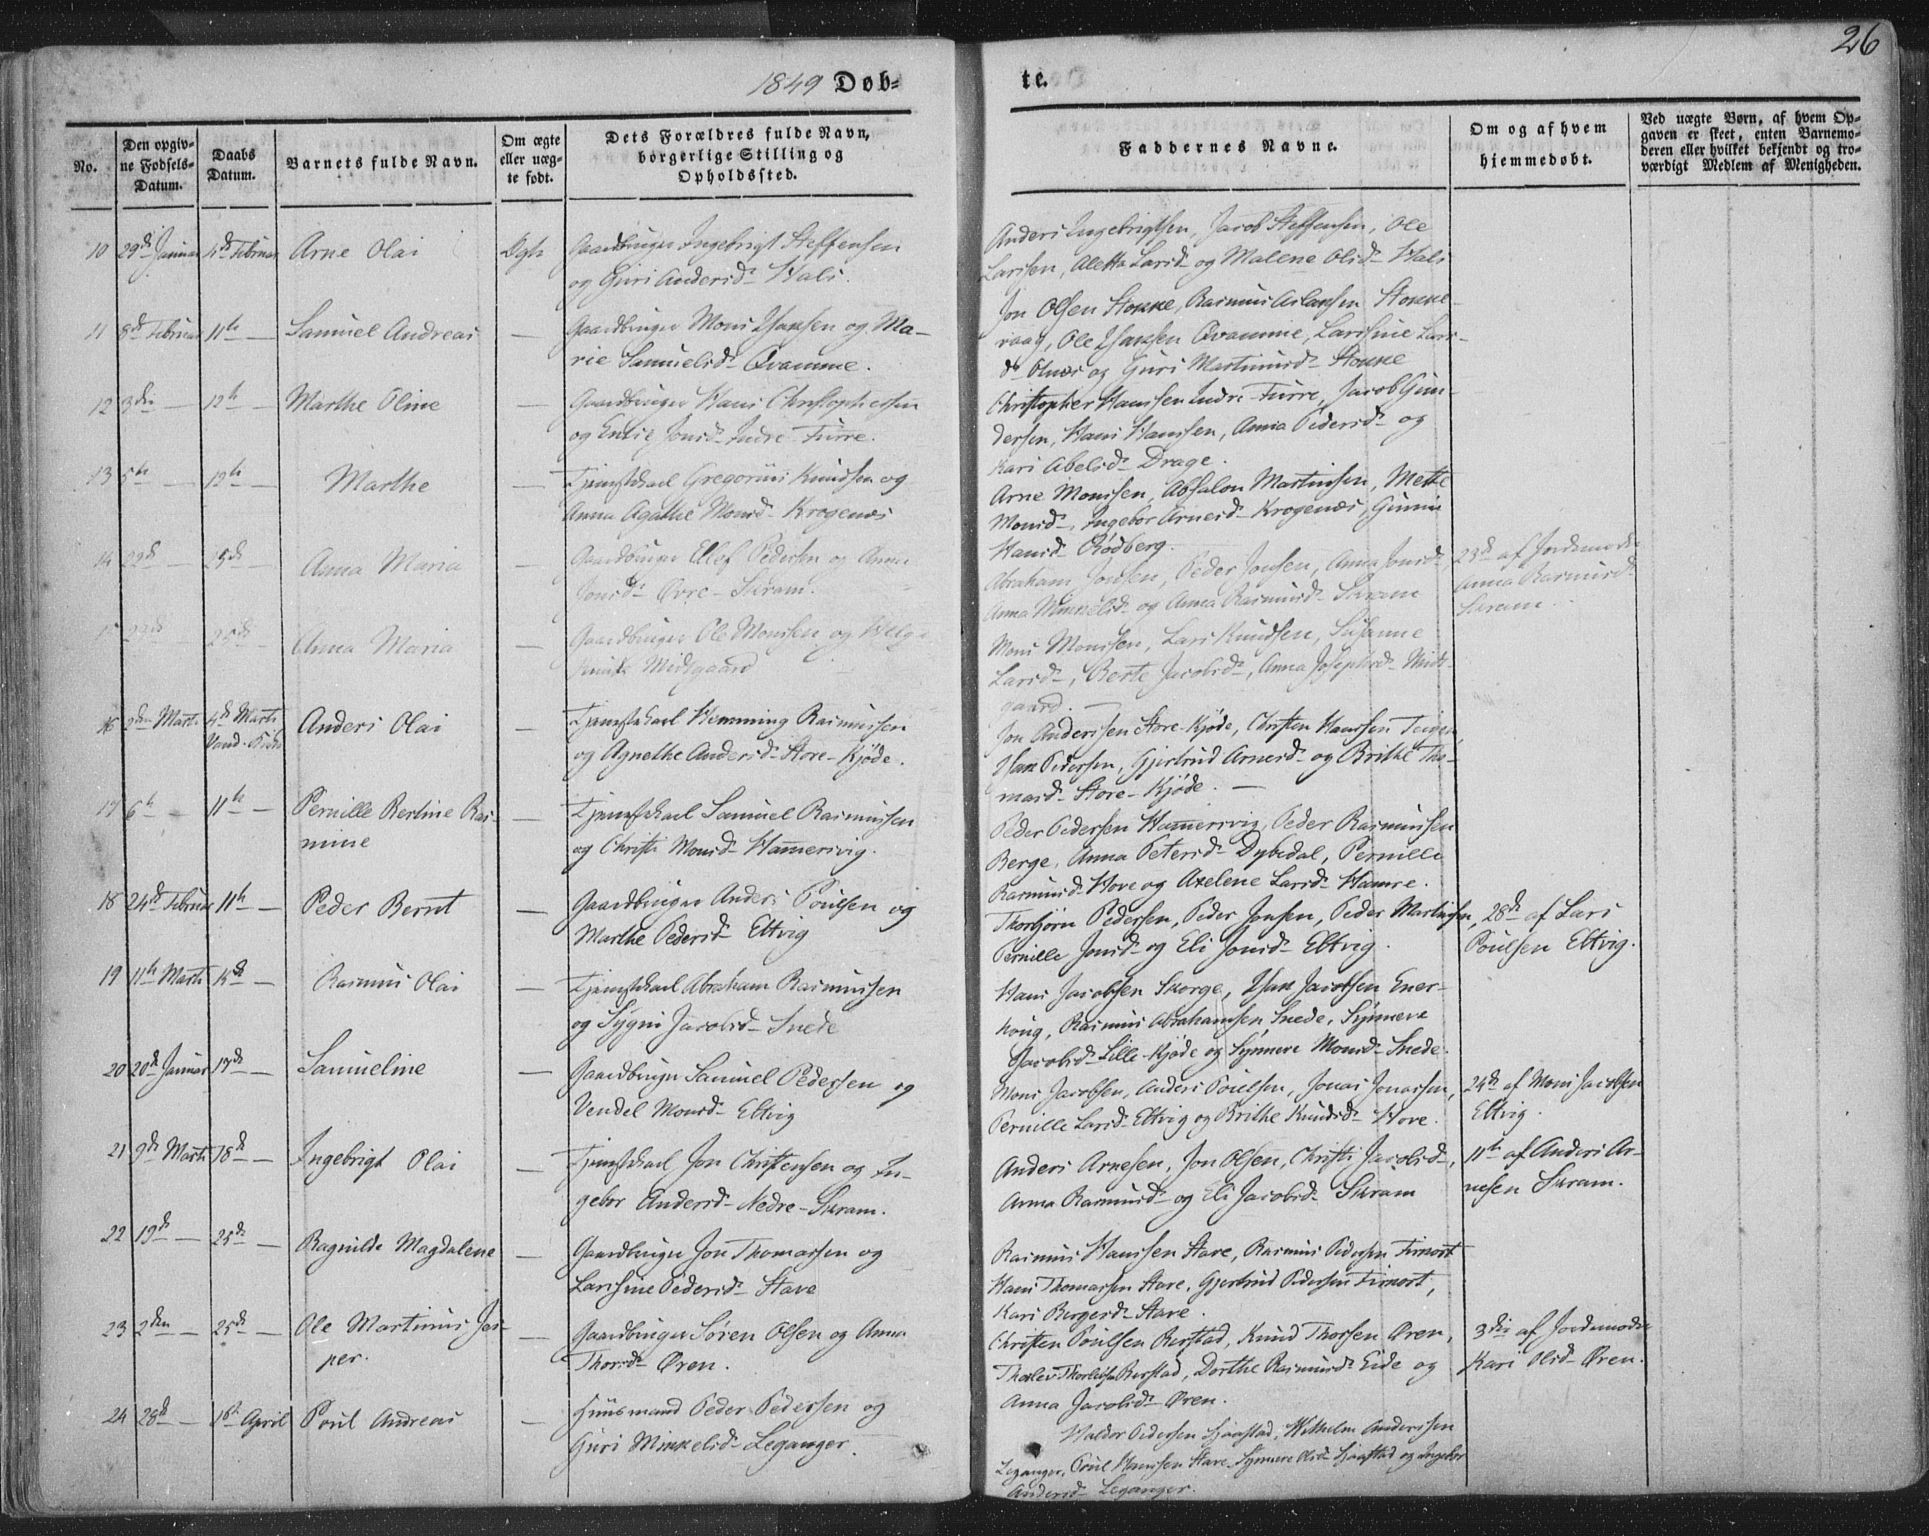 26
1849 Døb=
te.
No.
Den opgiv-
ne Fødsels-
Datum.
Daabs
Datum.
Barnets fulde Navn.
Om ægte
eller uæg-
te født.
Dets Forældres fulde Navn,
borgerlige Stilling og
Opholdssted.
Faddernes Navne.
Om og af hvem
hjemmedøbt.
Ved uægte Børn, af hvem Op-
gaven er skeet, enten Barnemo-
deren eller hvilket bekjendt og tro-
værdigt Medlem af Menigheden.
10 29de Januar 4de Februar Arne Olai Ægte Gaardbruger Ingebrigt Steffensen
og Guri Andersd. Hals.
Anders Ingebrigtsen, Jacob Steffensen, Ole
Larssen, Aletta Larsd. og Malene Olsd. Hals
11 8de Februar 11te — Samuel Andreas — Gaardbruger Mons Isaksen og Ma-
rie Samuelsd. Qvamme.
Jon Olsen Stokke, Rasmus Aslaksen Stokke-
vaag, Ole Isaksen Qvamme, Larssine Lars-
d. Olnes og Guri Martinusd. Stokke
12 3die — 12te — Marthe Oline — Gaardbruger Hans Christophersen
og Jonsd. Indre-Furre.
Christopher Hanssen Indre-Furre, Jacob Gun-
dersen, Hans Hanssen, Anna Pedersd. og
Kari Abelsd. Drage.
13 5te — 12te — Marthe — Tjenestekarl Gregorius Knudsen og
Anna Agathe Monsd. Krogenæs
Arne Monssen, Absalon Martinsen, Mette
Monsd., Ingebor Arnesd. Krogenæs,
Hansd. Rødberg.
14 22de — 25de — Anna Maria — Gaardbruger Ellef Pedersen og Anna
Jonsd. Øvre-Skram.
Abraham Jonsen, Peder Jonsen, Anna Jonsd.,
Anna Minkelsd. og Anna Rasmusd. Skram
23de af Jordemoder
Anna Rasmusd.
Skram.
15 25de — Anna Maria — Gaardbruger Ole Monssen og
Midtgaard
Mons Monssen, Lars Knudsen, Susanne
Larsd., Berte Jacobsd., Anna Josephsd. Midt-
gaard.
16 2den Marts 4de Marts Anders Olai — Tjenestekarl Hemming Rasmussen
og Agnethe Andersd. Store-Kjøde.
Jon Anderssen Store-Kjøde, Christen Hanssen Teigen,
Isak Pedersen, Gjertrud Arnesd. og Brithe Tho-
masd. Store-Kjøde. —
17 6te — 11te — Pernille Bertine Ras-
mine
— Tjenestekarl Samuel Rasmussen
og Christi Monsd. Hammersvig.
Peder Pedersen Hammersvig, Peder Rasmussen
Berge, Anna Petersd. Dybedal, Pernille
Rasmusd. Hove og Axelene Larsd. Hamre.
18 24de Februar 11te — Peder Bernt — Gaardbruger Anders Poulsen og
Marthe Pedersd. Eltvig
Thorbjørn Pedersen, Peder Jonsen, Peder Martinsen,
Pernille Jonsd. og Eli Jonsd. Eltvig.
28de af Lars
Poulsen Eltvig.
19 11te Marts — Rasmus Olai — Tjenestekarl Abraham Rasmussen
og Sygni Jacobsd. Snede
Hans Jacobsen Skorge, Isak Jacobsen Ener-
houg, Rasmus Abrahamsen Snede, Synneve
Jacobsd. Lille-Kjøde og Synneve Monsd. Snede.
20 20de Januar — Samueline — Gaardbruger Samuel Pedersen og
Vendel Monsd. Eltvig
Mons Jacobsen, Anders Poulsen, Jonas Jonassen,
Pernille Larsd. Eltvig og Brithe Knudsd. Hove.
24de af Mons Jacobsen
Eltvig.
21 9de Marts 18de — Ingebrigt Olai — Tjenestekarl Jon Christensen og In-
gebor Andersd. Nedre-Skram.
Anders Arnesen, Jon Olsen, Christi Jacobsd.,
Anna Rasmusd. og Eli Jacobsd. Skram
11te af Anders Ar-
nesen Skram.
22 19de — 25de — Ragnilde Magdalene — Gaardbruger Jon Thomassen og
Larssine Pedersd. Stave
Rasmus Hanssen Stave, Rasmus Pedersen Fimort
Hans Thomassen Stave, Gjertrud Pedersen Fimort,
Kari Birgersd. Stave.
23 2den — 25de — Ole Martinus Jes-
per.
— Gaardbruger Søren Olsen og Anna
Thorsd. Øren.
Christen Poulsen Berstad, Knud Thorsen Øren,
Thorleisen Berstad, Dorthe Rasmusd. Eide og
Anna Jacobsd. Øren.
3die af Jordemoder
Kari Olsd. Øren.
24 28de — 1ste April Poul Andreas — Huusmand Peder Pedersen og
Guri Minkelsd. Leganger.
Halder Pedersen Sjaastad, Wilhelm Anderssen
Leganger, Poul Hanssen Stave, Synneve Olsd. Sjaastad og Ingebor
Andersd. Leganger.